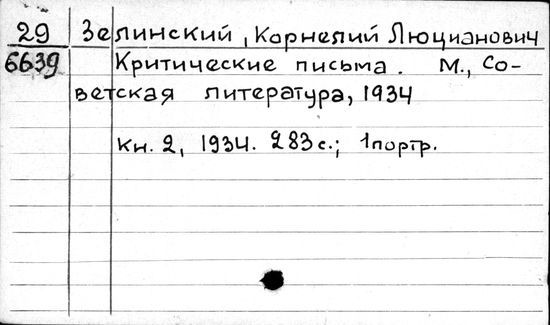 29 Зелинский, Корнелий Люцианович
6639 Критические письма. М., Со-
ветская литература, 1934
Кн. 2, 1934. 283 с.; 1 портр.